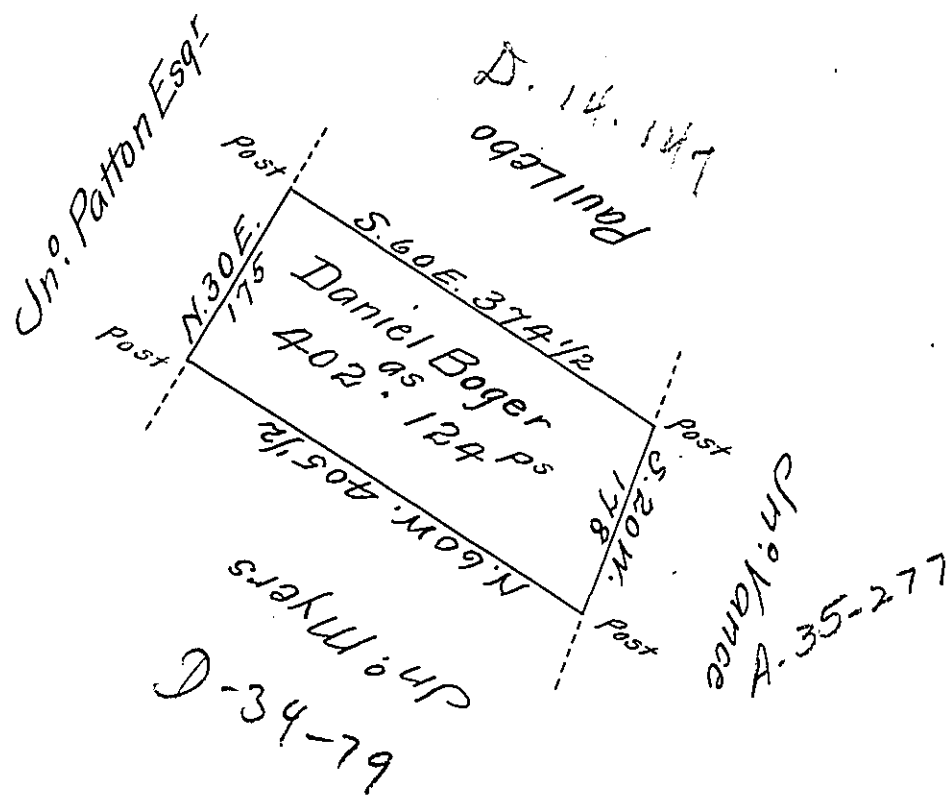 Jnọ. Patton Esqʳ
D. 14. 147
Paul Lebo
Post
S. 60 E. 374 1/2
N. 30 E.
175
Daniel Boger
as
402 . 124 ps
Post
Post
S. 20 W.
178
N. 60 W. 405 1/2
Post
Jnọ Vance
A. 35-277
Jnọ Myers
D-34-79